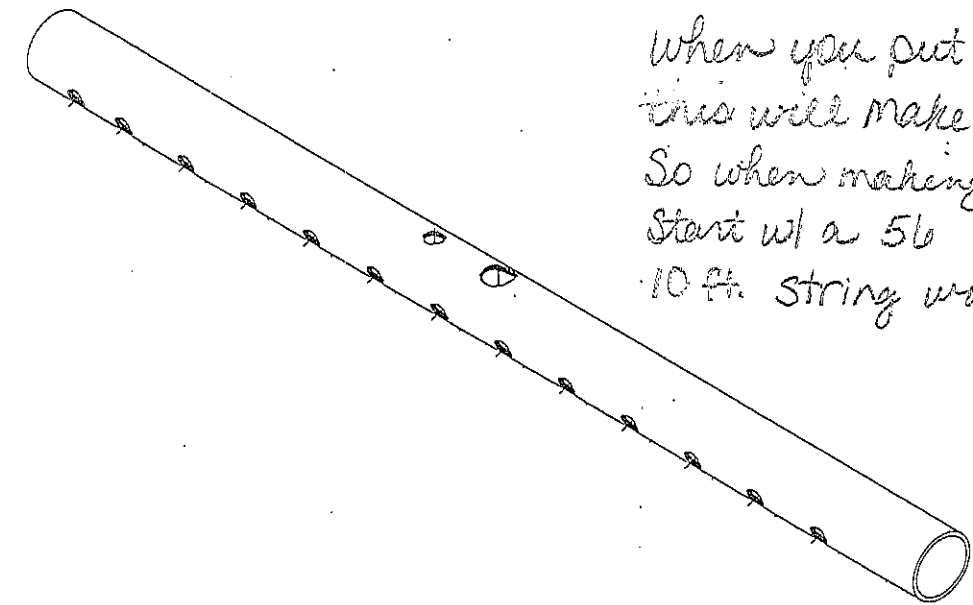 when you put
this will make
So when making
Start w/ a 56
10 ft. string